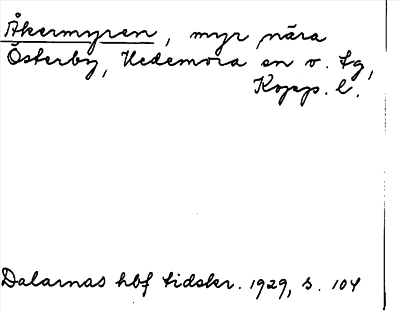 Åkermyren, myr nära
Österby, Hedemora sn o. tg,
Kopp. l.
Dalarnas hbf tidskr. 1929, s. 104